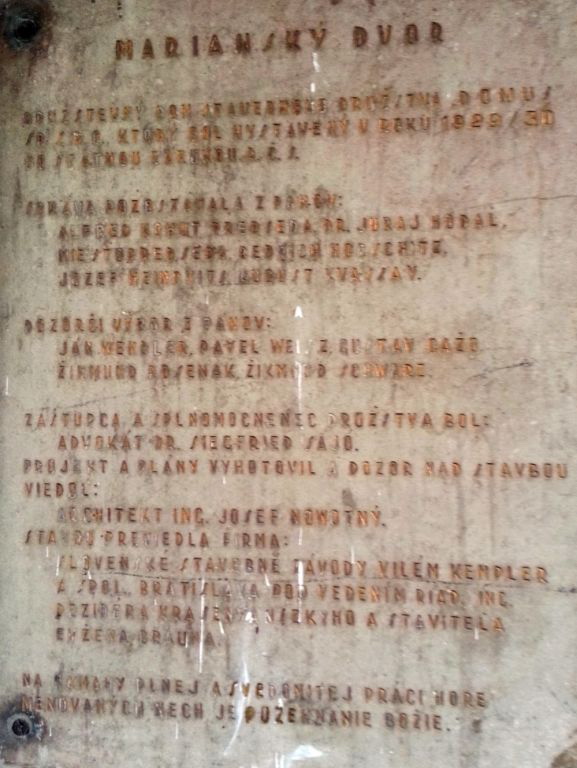 MARIANSKÝ DVOR
DRUŽSTEVNÝ DOM STAVEBNÉHO DRUŽSTVA „DOMUS"
SP. S R. O., KTORÝ BOL VYSTAVENÝ V ROKU 1929/30
SO STÁTNOU ZÁRUKOU R. Č. S.
SPRÁVA POZOSTÁVALA Z PÁNOV:
ALFRED PREDSEDA, DR. JURAJ NOPAL,
MIESTOPREDSEDA, BEDRICH
JOZEF AUGUST KVASSAY.
DOZORČÍ VÝBOR Z PÁNOV:
JÁN WENDLER, PAVEL GUSTÁV
ŽIKMUND ROSENAK, ŽIKMUND SCHWARZ.
ZÁSTUPCA A SPLNOMOCNENEC DRUŽSTVA BOL:
ADVOKÁT DR. SIEGFRIED SAJO.
PROJEKT A PLÁNY VYHOTOVIL A DOZOR NAD STAVBOU
VIEDOL:
ARCHITEKT ING. JOSEF NOWOTNÝ.
STAVBU PREVIEDLA FIRMA:
SLOVENSKÉ STAVEBNÉ ZÁVODY VILÉM KEMPLER
A SPOL. BRATISLAVA POD VEDENÍM RIAD. ING.
DEZIDERA A STAVITELA
EUŽENA BRAUNA.
NA PLNEJ A SVEDOMITEJ PRÁCI HORE
MENOVANÝCH NECH JE POŽEHNANIE BOŽIE.